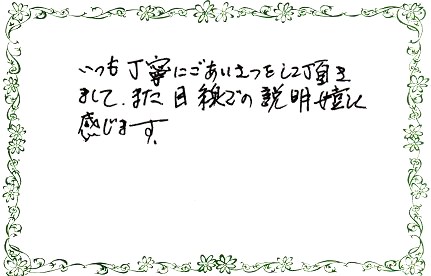 いつも丁寧にごあいさつをして頂き
まして、また目線での説明嬉しく
感じます。